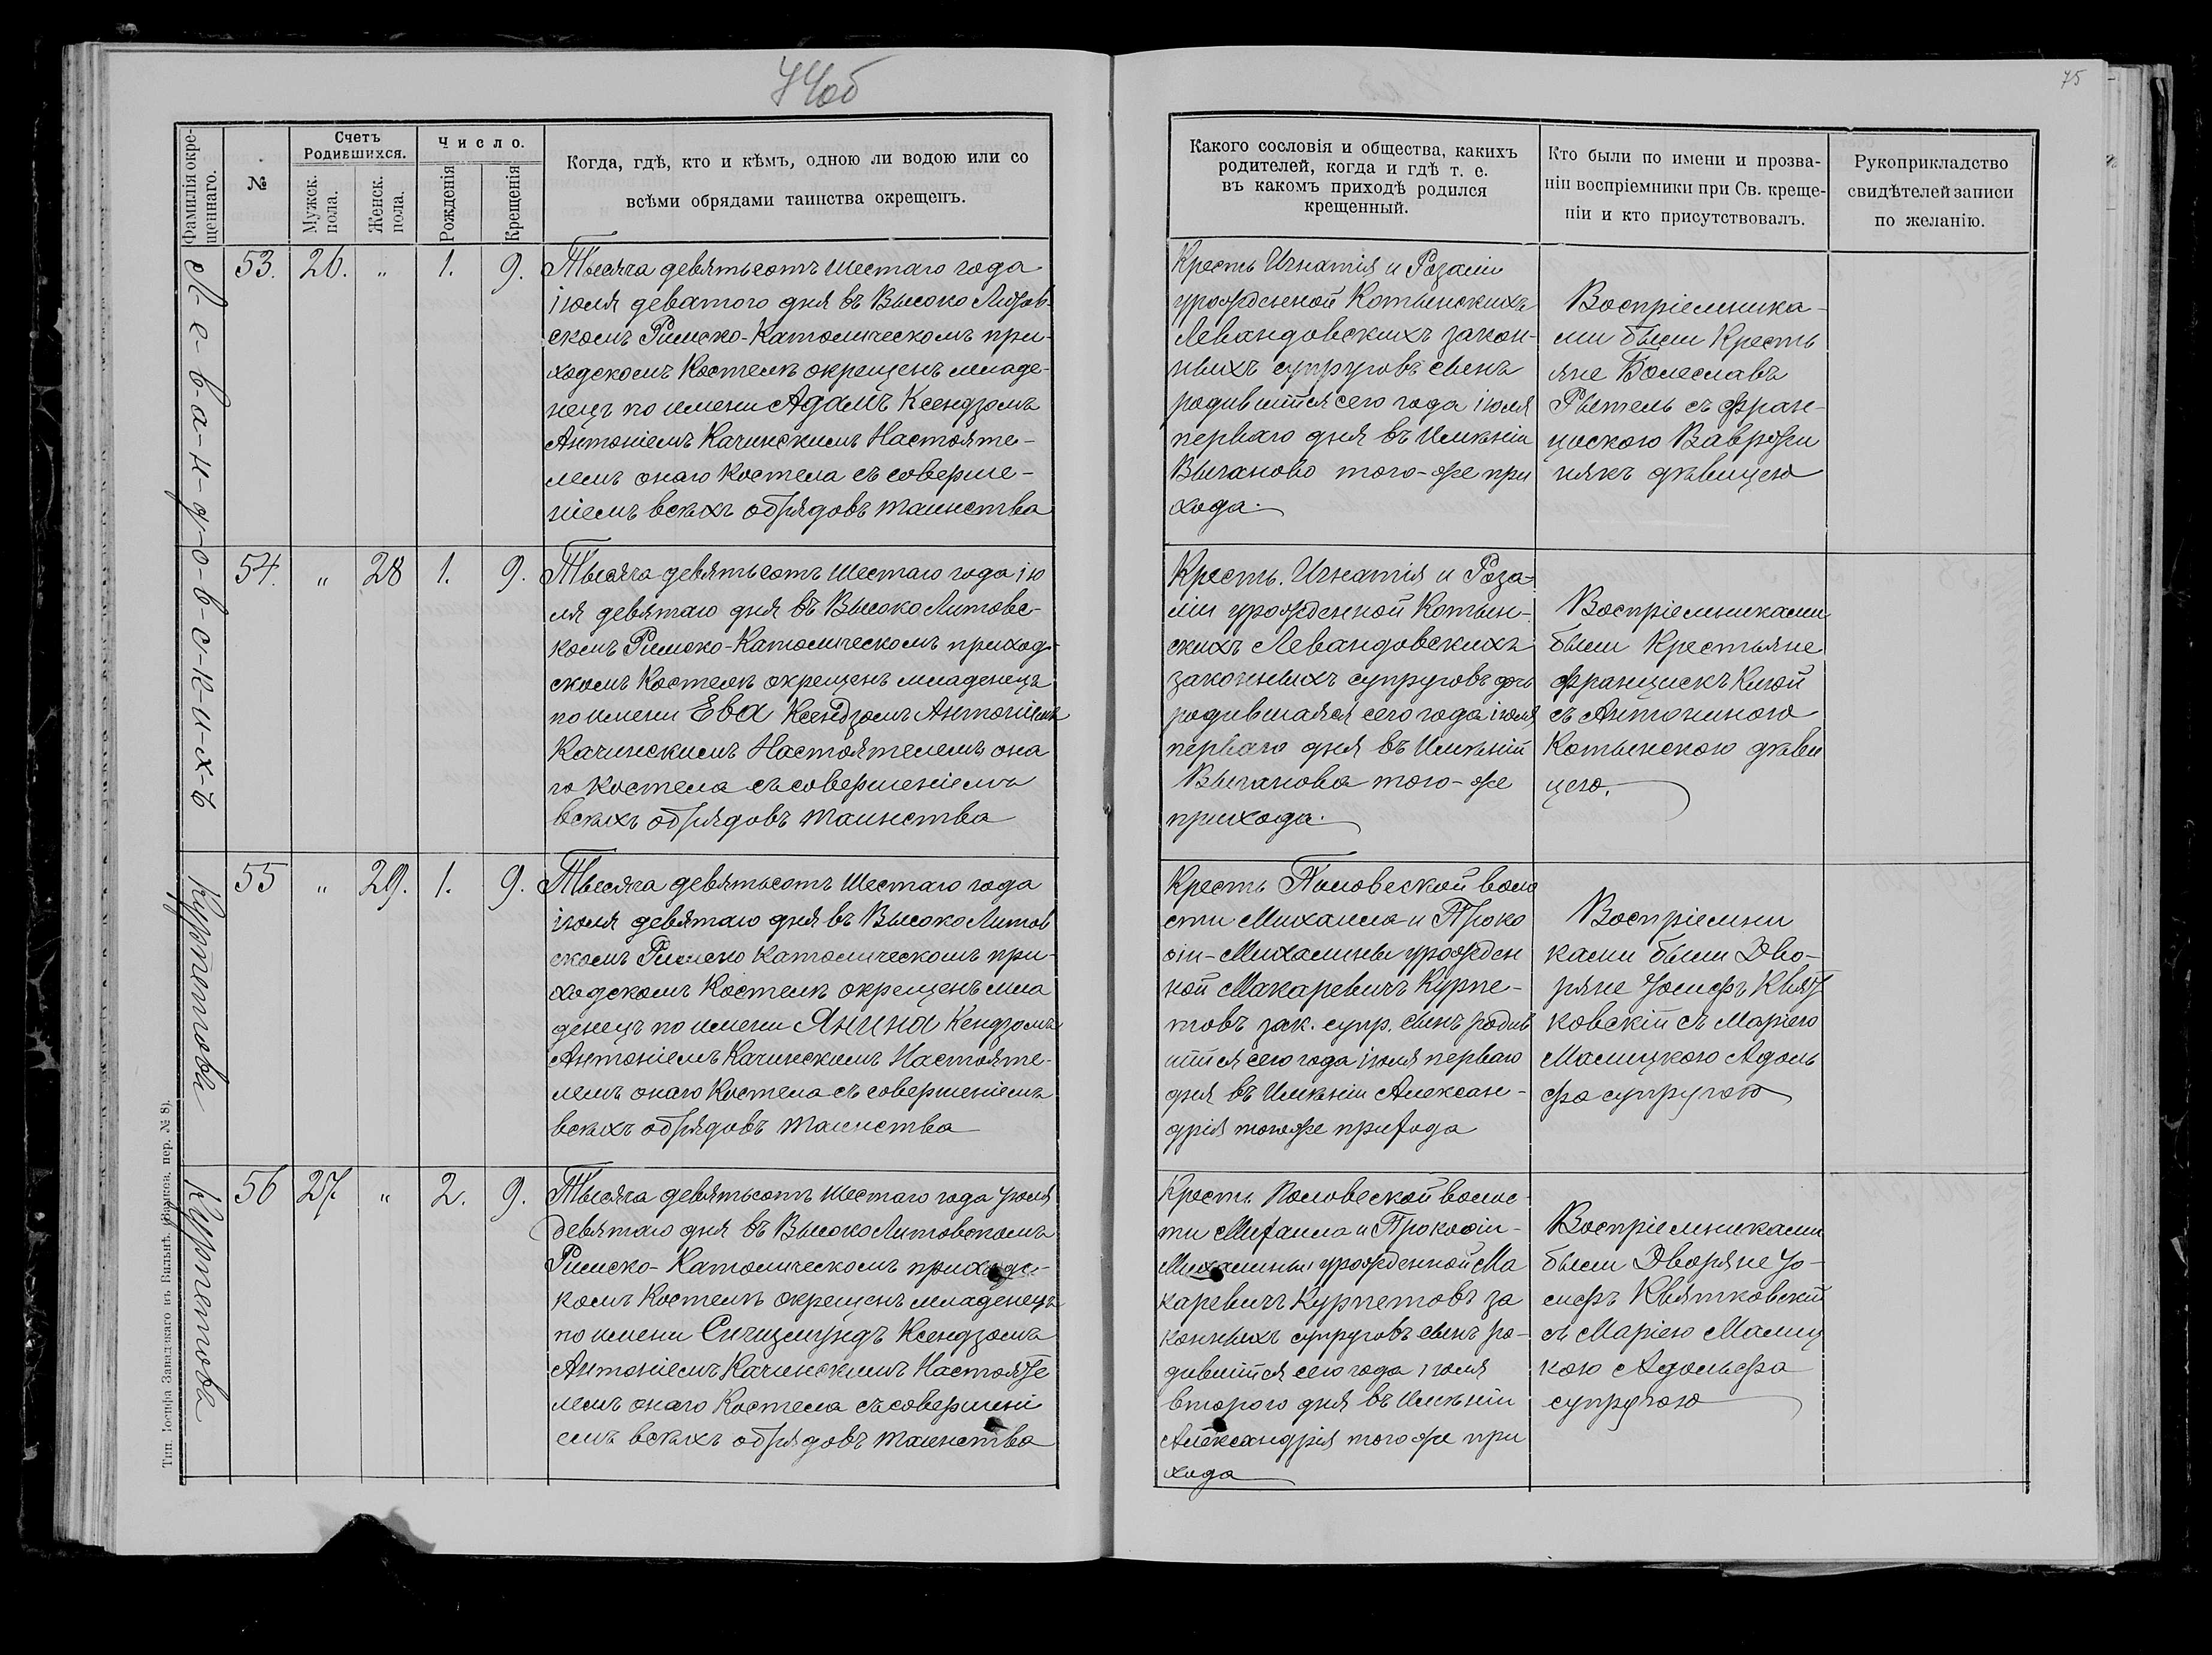 74об
75
Фамилія окре-
щеннаго.
№
Счетъ
Родившихся.
Мужск.
пола.
Женск.
пола.
Число.
Рожденія
Крещенія
Когда, гдѣ, кто и кѣмъ, одною ли водою или со
всѣми обрядами таинства окрещенъ.
Какого сословія и общества, какихъ
родителей, когда и гдѣ т. е.
въ какомъ приходѣ родился
крещенный.
Кто были по имени и прозва-
ніи воспріемники при Св. креще-
ніи и кто присутствовалъ.
Рукоприкладство
свидѣтелей записи
по желанію.
Л-е-в-а-н-д-о-в-с-к-и-х-ъ
53. 26. " 1. 9.
Тысяча девятьсотъ шестаго года
іюля деватого дня въ Высоко Литов-
скомъ Римско-Католическомъ при-
ходскомъ Костелѣ окрещенъ младе-
нецъ по имени Адамъ Ксендзомъ
Антоніемъ Качинскимъ Настояте-
лемъ онаго Костела съ соверше-
ніемъ всѣхъ обрядовъ таинства
Кресть Игнатія и Розаліи
урожденной Котынскихъ
Левандовскихъ закон-
ныхъ супруговъ сынъ
родившійся сего года іюля
перваго дня въ Имѣніи
Выганово того-же при
хода.
Воспріемника-
ми были Кресть
яне Болеславъ
Рытель съ Фран-
циской Ваврофи
някъ дѣвицею
54. " 28 1. 9.
Тысяча девятьсотъ шестаго года ію
ля девятаго дня въ Высоко Литовс-
комъ Римско-Католическомъ приход-
скомъ Костелѣ окрещенъ младенецъ
по имени Ева Ксендзомъ Антоніемъ
Качинскимъ Настоятелемъ она
го Костела съ совершеніемъ
всѣхъ обрядовъ таинства
Кресть. Игнатія и Роза-
ліи урожденной Котын-
скихъ Левандовскихъ
законныхъ супруговъ дочь
родившаяся сего года іюля
перваго дня въ Имѣніи
Выганова того-же
прихода.
Воспріемниками
были Крестьяне
Францискъ
съ Антониною
Котынскою дѣви
цею.
Курпетовы
55 " 29. 1. 9.
Тысяча девятьсотъ шестаго года
іюля девятаго дня въ Высоко Литов
скомъ Римско Католическомъ при-
ходскомъ Костелѣ окрещенъ мла
денецъ по имени Янина Кендзомъ
Антоніемъ Качинскимъ Настояте-
лемъ онаго Костела съ совершеніемъ
всѣхъ обрядовъ таинства
Кресть Половеской воло
сти Михаила и Проко
ѳіи-Михалины урожден
ной Макаревичъ Курпе-
товъ зак. супр. сынъ родив
шійся сего года іюля перваго
дня въ Имѣніи Алексан-
дрія тогоже прихода
Воспріемни
ками были Дво-
ряне Іосифъ Квят
ковскій съ Маріею
Малицкою Адоль
фа супругою
Курпетовы
56 27. " 2. 9.
Тысяча девятьсотъ шестаго года Іюля
девятаго дня въ Высоко Литовскомъ
Римско-Католическомъ приходс-
комъ Костелѣ окрещенъ младенецъ
по имени Сигизмундъ Ксендзомъ
Антоніемъ Качинскимъ Настояте
лемъ онаго Костела съ совершені
емъ всѣхъ обрядовъ таинства
Кресть Половеской волос-
ти Михаила и Прокоѳіи-
Михалины урожденной Ма
каревичъ Курпетовъ за
конныхъ супруговъ сынъ ро-
дившійся сего года іюля
второго дня въ Имѣніи
Александрія того же при
хода
Воспріемниками
были Дворяне Іо-
сифъ Квятковскій
съ Маріею Малиц
кою Адольфа
супругою
Тип. Іосифа Завадскаго въ Вильнѣ. (Ванков. пер. № 8).